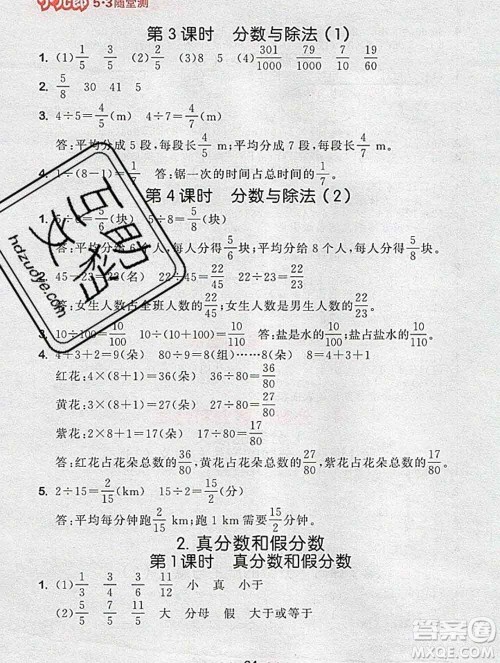 小儿郎 5·3随堂测
第3课时 分数与除法（1）
1. (1) 4/5 5/8 1/3 (2) 253/1000 31/1000 7/100 19/60
2. 5/8 30 41 5
3. 4÷5=4/5(m) 4÷7=4/7(m)
答:平均分成5段,每段长4/5 m;平均分成7段,每段长4/7 m。
4. 1÷(8-1)= 答:锯一次的时间占总时间的
第4课时 分数与除法（2）
1. 5÷6=5/6(块) 5÷8=5/8(块)
答:平均分给6个人,每人分得5/6块;平均分给8个人,每人分得5/8块。
2. 45-23=22(名) 22÷45=22/45 22÷23=22/23
答:女生人数占全班人数的22/45,女生人数是男生人数的22/23。
3. 10÷100=10/100 10÷(100+10)=10/110 答:盐是水的10/100,盐占盐水的10/110。
4. 4+3+2=9(朵) 80÷9=8(组)……8(朵)
红花:4×(8+1)=36(朵) 36÷80=36/80
黄花:3×(8+1)=27(朵)
紫花:2×8+1=17(朵) 17÷80=17/80
答:红花占花朵总数的36/80,黄花占花朵总数的27/80,紫花占花朵总数的17/80。
5. 2÷15=2/15(km) 15÷2=15/2(分)
答:平均每分钟跑2/15 km;跑1 km需要15/2分钟。
2. 真分数和假分数
第1课时 真分数和假分数
1. (1) 1/3 3/3 11/12 小 真 小于
(2) 大 分母 假 大于
互助文档
hdzuoye.com
作业答案
MXQE.COM